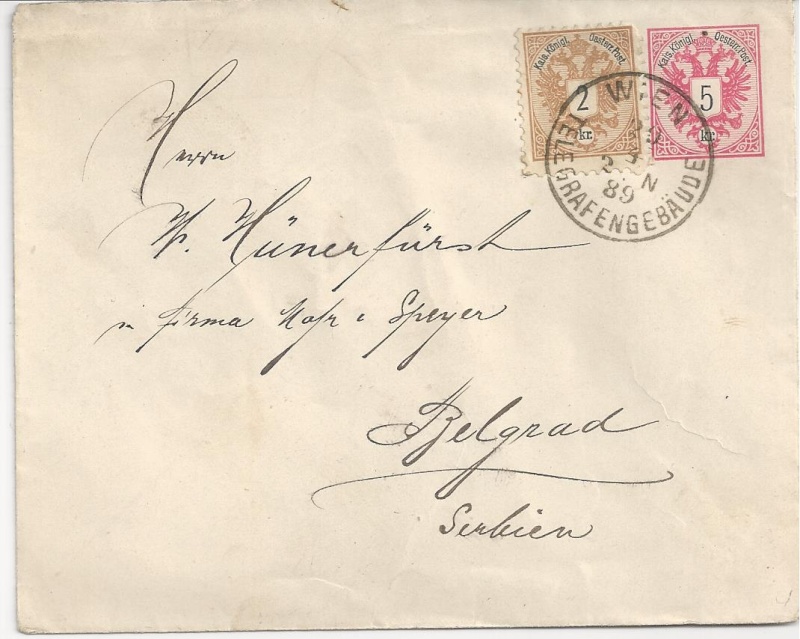 Kais. Königl. Oesterr. Post.
2
kr.
Kais. Königl. Oesterr. Post.
5
kr.
WIEN
2 N
89
TELEGRAFENGEBÄUDE
Herrn
Hünerfürst
in Firma Mohr & Speyer
Belgrad
Serbien